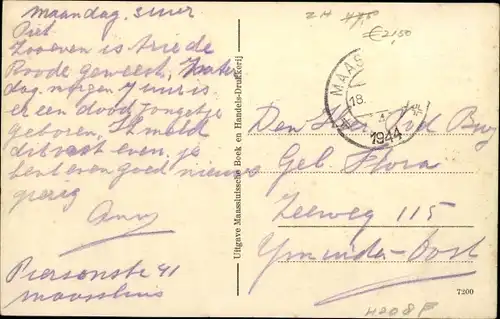 Maandag. 3 uur
Piet
Zooeven is trie de
Roode geweest, Zater
dag morgen 7 uur is
er een dood jongetje
geboren, Ik meld
dit vast even, je
bent even goed nieuws
gierig
Anny
Piersonstr 41
Maassluis
Uitgave Maassluissche Boek en Handels-Drukkerij
ZH
€2,50
MAAS
18.
4
1944
Den Heer v/d Burg
Geb. Flora
Zeeweg 115
Ymuiden-Oost
7200
4208F